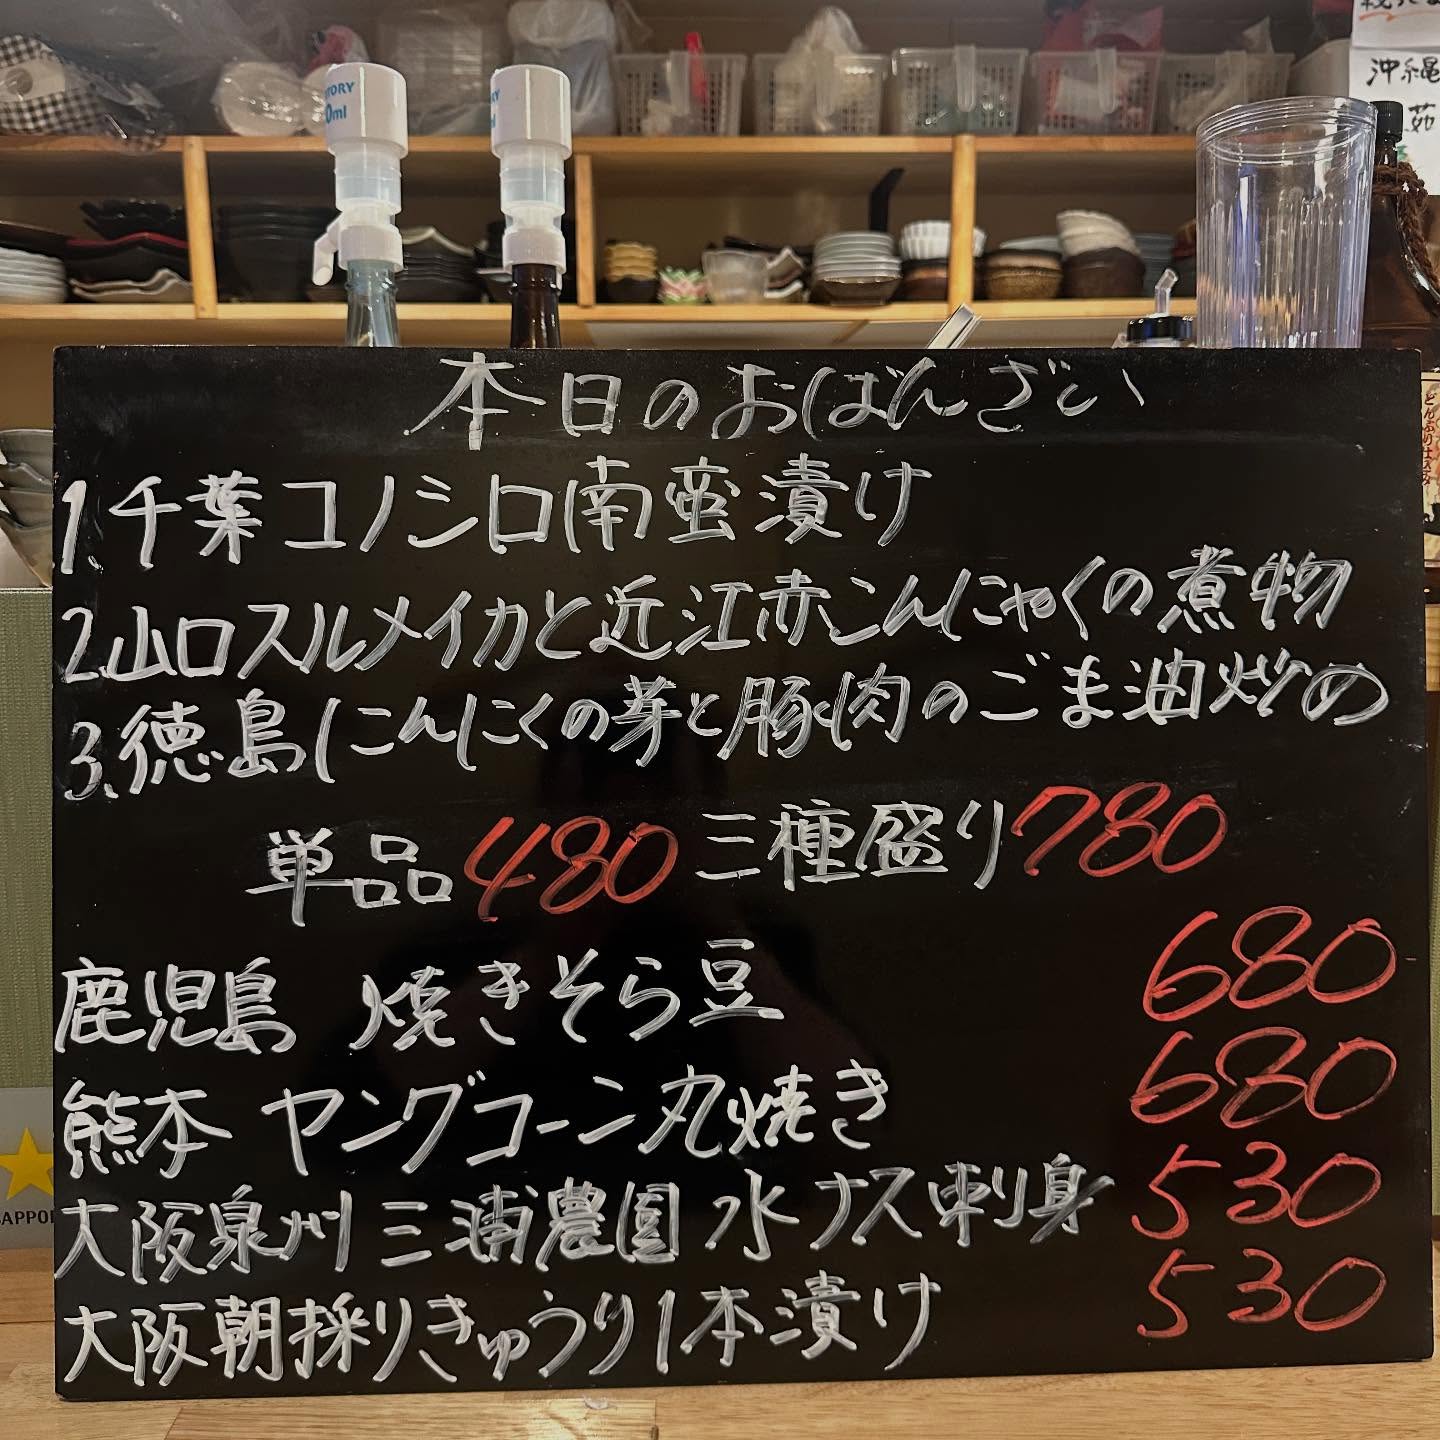 沖縄
茹
TORY
0ml
本日のおばんざい
1.千葉コノシロ南蛮漬け
2.山口スルメイカと近江赤こんにゃくの煮物
3.徳島にんにくの芽と豚肉のごま油炒め
単品480 三種盛り780
鹿児島 焼きそら豆 680
熊本 ヤングコーン丸焼き 680
大阪泉州 三浦農園 水ナス刺身 530
大阪朝採りきゅうり1本漬け 530
SAPPO